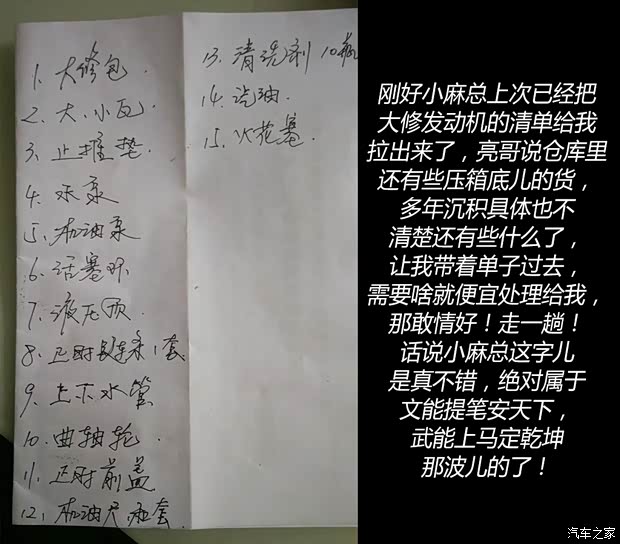 1. 大修包.
2. 大.小瓦.
3. 止推垫.
4. 水泵
5. 机油泵
6. 活塞环
7. 液压顶.
8. 正时链条1套
9. 上下水管
10. 曲轴轮.
11. 正时前盖
12. 机油尺.和套.
13. 清洗剂 10瓶
14. 汽油.
15. 火花塞.
刚好小麻总上次已经把
大修发动机的清单给我
拉出来了，亮哥说仓库里
还有些压箱底儿的货，
多年沉积具体也不
清楚还有些什么了，
让我带着单子过去，
需要啥就便宜处理给我，
那敢情好！走一趟！
话说小麻总这字儿
是真不错，绝对属于
文能提笔安天下，
武能上马定乾坤
那波儿的了！
汽车之家